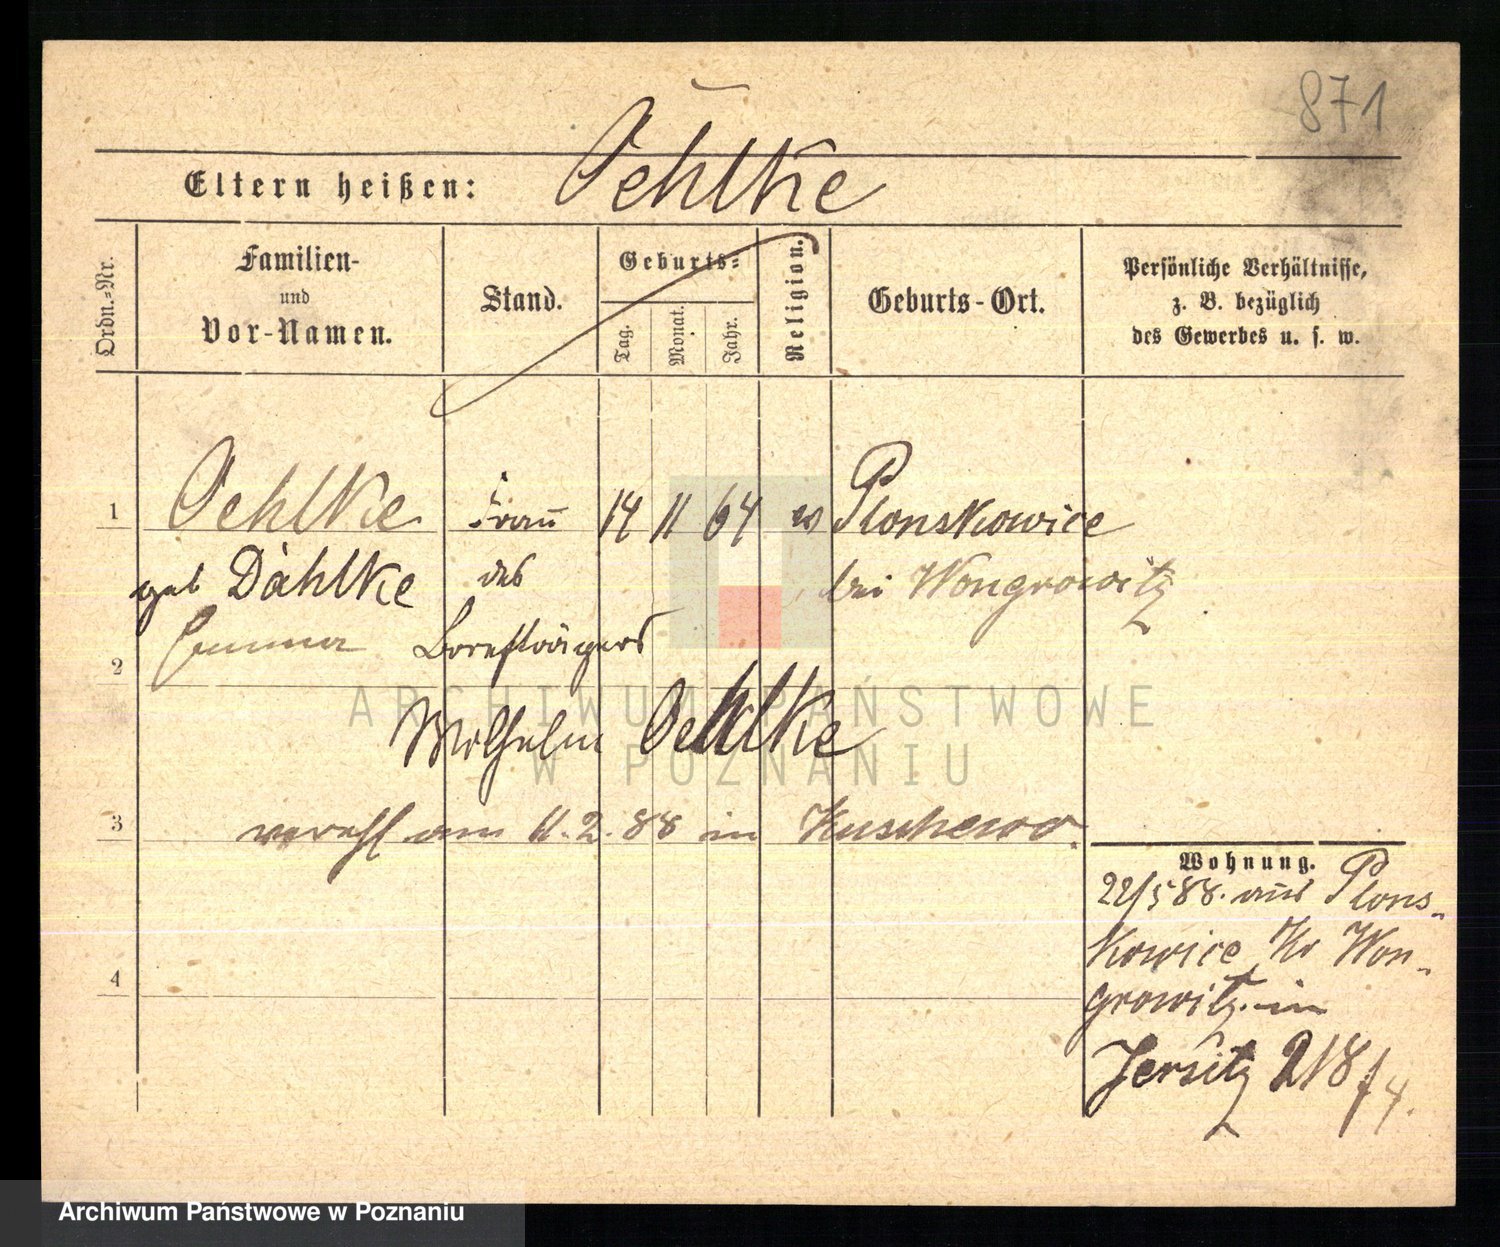 871
Eltern heißen: Oehlke
Ordn.=Nr.
Familien-
und
Vor-Namen.
Stand.
Geburts=
Tag.
Monat.
Jahr.
Religion.
Geburts-Ort.
Persönliche Verhältnisse,
z. B. bezüglich
des Gewerbes u. s. w.
1 Oehlke Frau 14 11 64 ev Plonskowice
geb Dählke des bei Wongrowitz
2 Emma Briefträgers
Wilhelm Oehlke
3 vereh am 11.2.88 in Kuschewo.
4
Wohnung.
22/5 88. aus Plons-
kowice Kr Won-
growitz in
Jersitz 218
ARCHIWUM PAŃSTWOWE
W POZNANIU
Archiwum Państwowe w Poznaniu